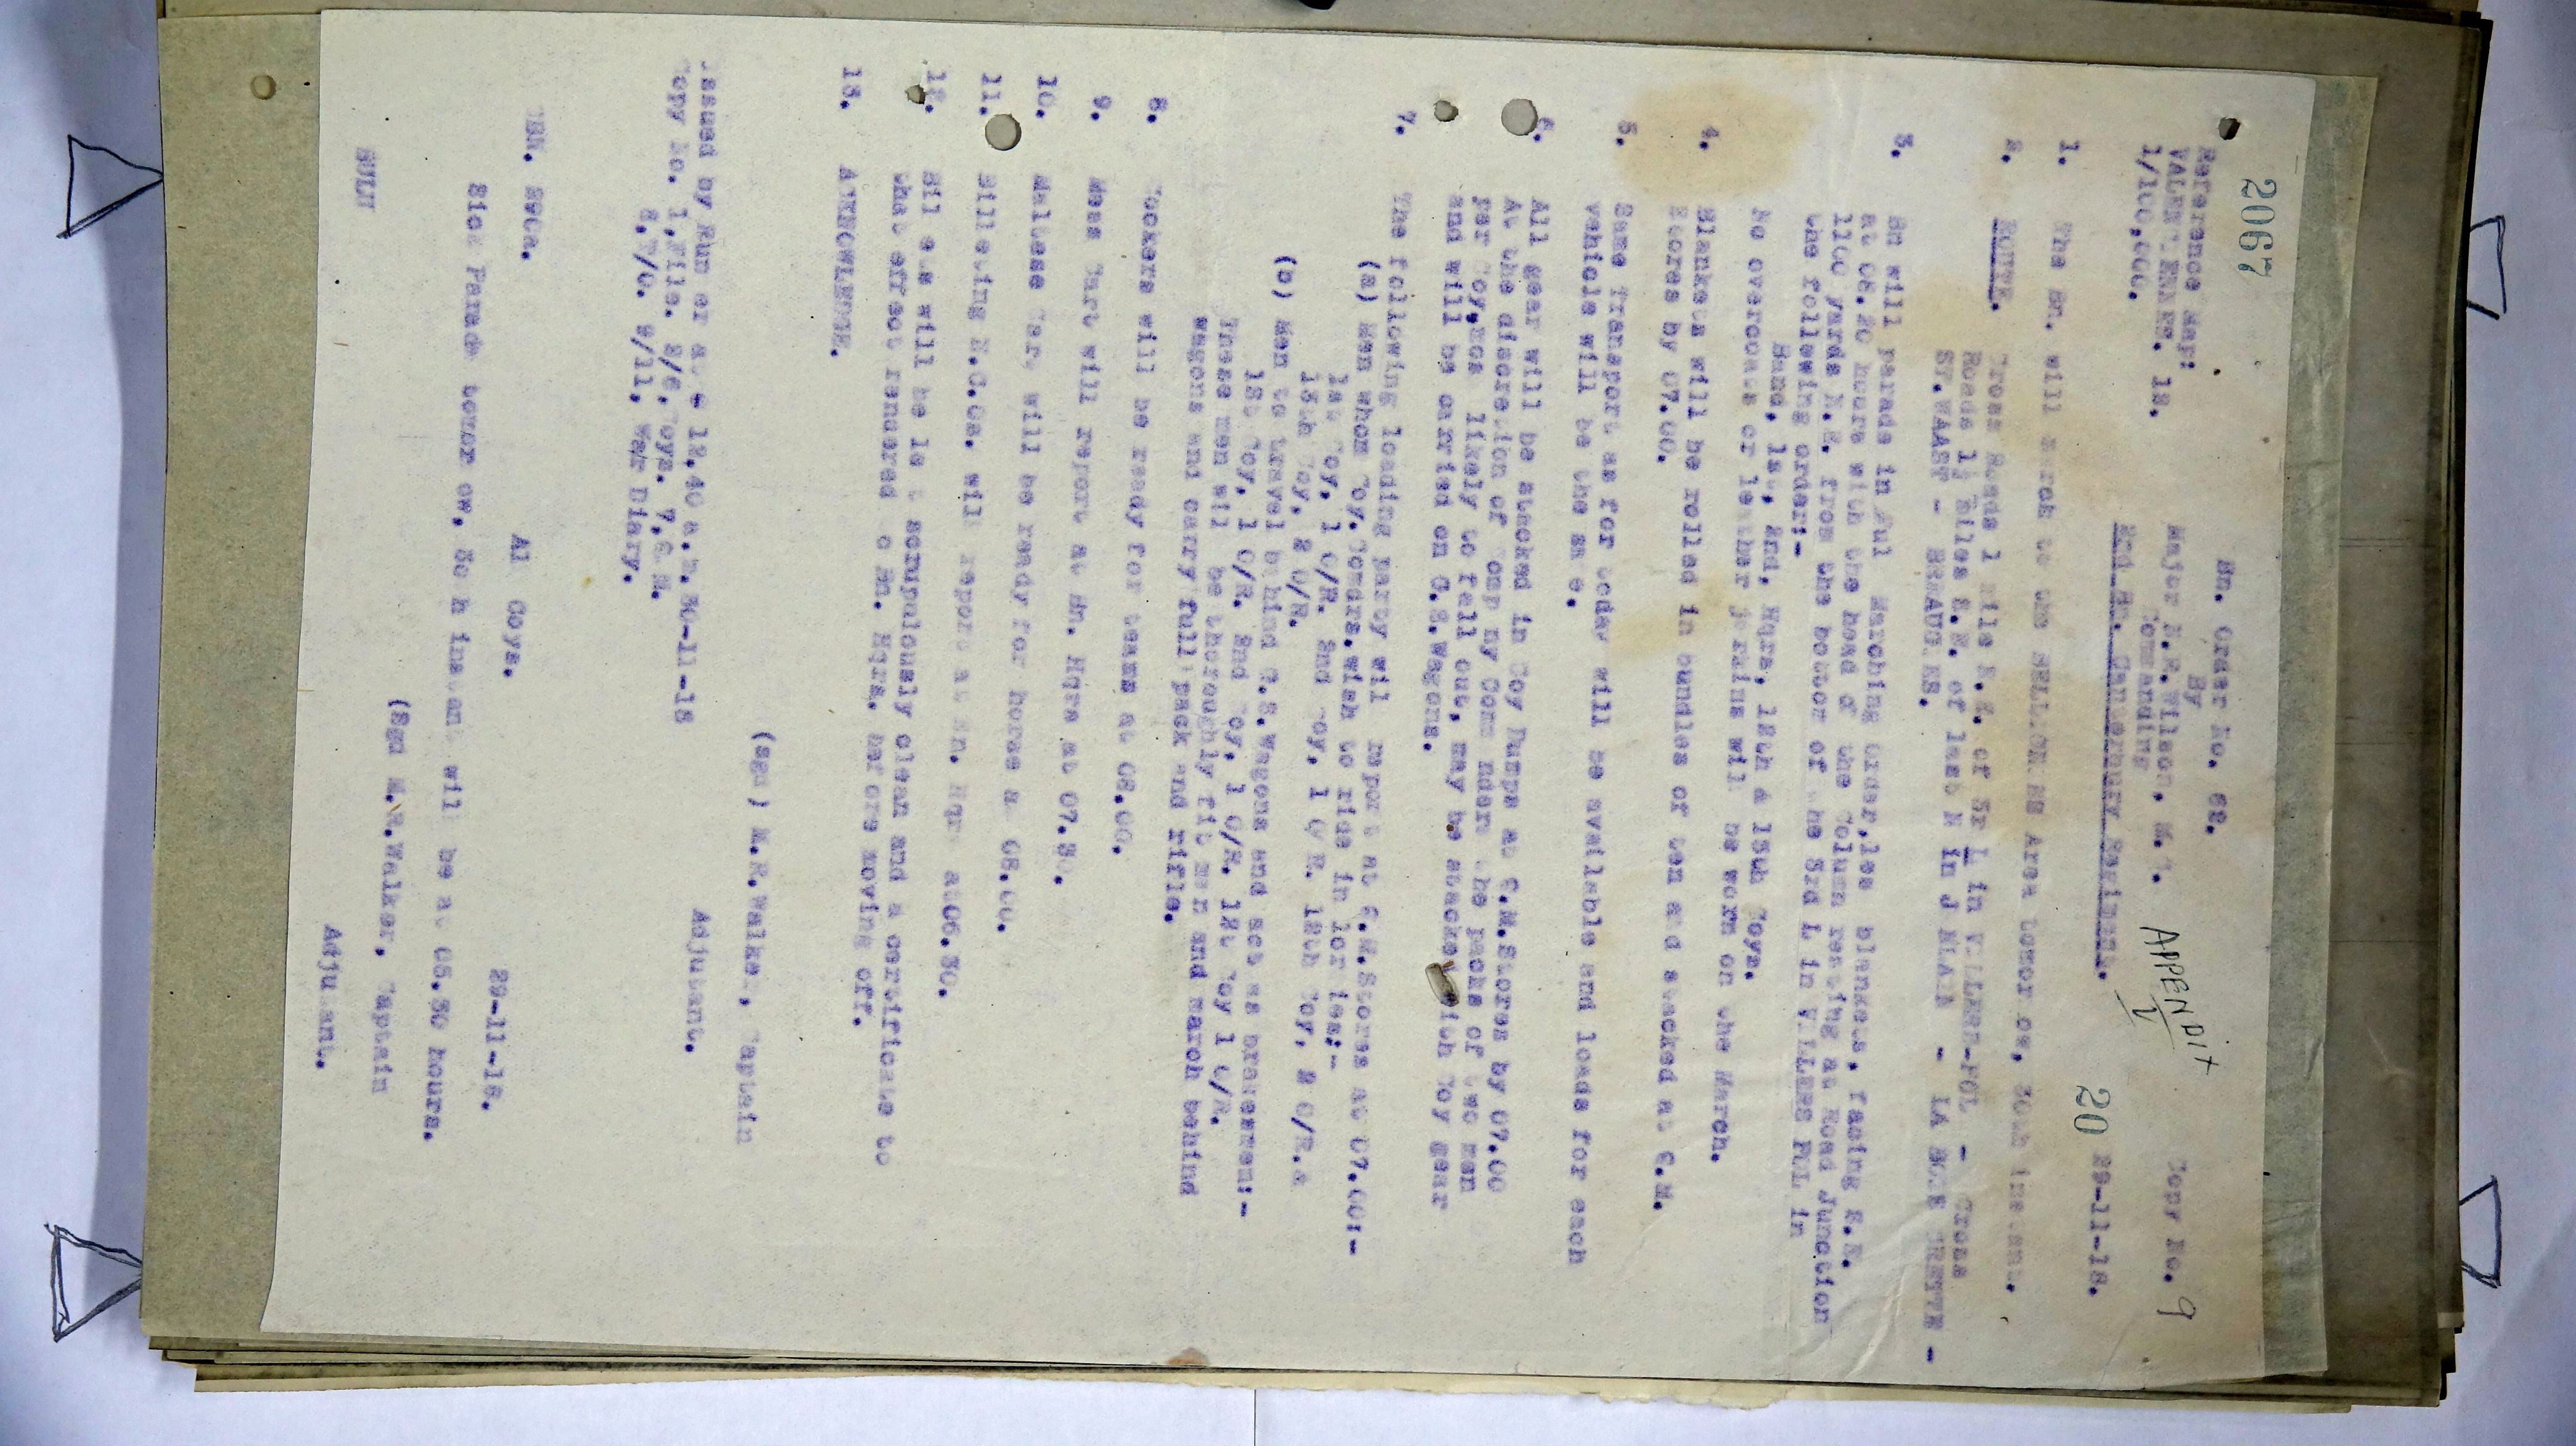 2067
Bn. Order No. 62.
By
Reference Map:
VALENCIENNES. 12.
1/100,000.
Major N.F.Wilson, M.C.
Commanding
2nd Bn. Canterbury Regiment.
APPENDIX
V
Copy No. 9
20 29-11-18.
1. The Bn. will march to the BELLONIES Area tomorrow, 30th instant.
2. ROUTE. Cross Roads 1 mile N.E. of 3r L in VILLERS-POL - Cross
Roads 1½ miles S.E. of last N in J NLAIN - LA BOIS CRETTE -
ST.WAAST - BREAUGIES.
3. Bn will parade in Full Marching Order, less blankets, facing S.E.
at 08.20 hours with the head of the Column resting at Road Junction
1100 yards N.E. from the bottom of the 3rd L in VILLERS POL in
the following order:-
Band, 1st, 2nd, Hqrs, 12th & 13th Coys.
No overcoats or leather jerkins will be worn on the March.
4. Blankets will be rolled in bundles of ten and stacked at Q.M.
Stores by 07.00.
5. Same Transport as for today will be available and loads for each
vehicle will be the same.
6. All gear will be stacked in Coy Dumps at Q.M.Stores by 07.00
At the discretion of Company Commanders the packs of two men
per Coy, who's likely to fall out, may be stacked with Coy gear
and will be carried on G.S.Wagons.
7. The following loading party will report at Q.M.Stores at 07.00:-
(a) Men whom Coy.Comdrs.wish to ride in lorries:-
1st Coy, 1 O/R. 2nd Coy, 1 O/R. 12th Coy, 2 O/R.&
13th Coy, 2 O/R.
(b) Men to travel behind G.S.Wagons and act as brakesmen:-
1st Coy, 1 O/R. 2nd Coy, 1 O/R. 12t Coy 1 O/R.
These men will be thoroughly fit men and march behind
wagons and carry full pack and rifle.
8. Cookers will be ready for teams at 08.00.
9. Mess Cart will report at Bn. Hqrs at 07.30.
10. Maltese Cart will be ready for horse at 08.00.
11. Billeting N.C.Os. will report at Bn. Hqrs at 06.30.
12. Billets will be left scrupulously clean and a certificate to
that effect rendered to Bn. Hqrs. before moving off.
13. ACKNOWLEDGE.
(sgd) M.R.Walker, Captain
Adjutant.
Issued by Runner at 12.40 a.m. 30-11-18
Copy No. 1,File. 2/6, Coys. 7,Q M.
8,T/O. 9/11, War Diary.
Al Coys. 29-11-18.
Sick Parade tomorrow, 30th instant will be at 05.30 hours.
(Sgd M.R.Walker, Captain
Adjutant.